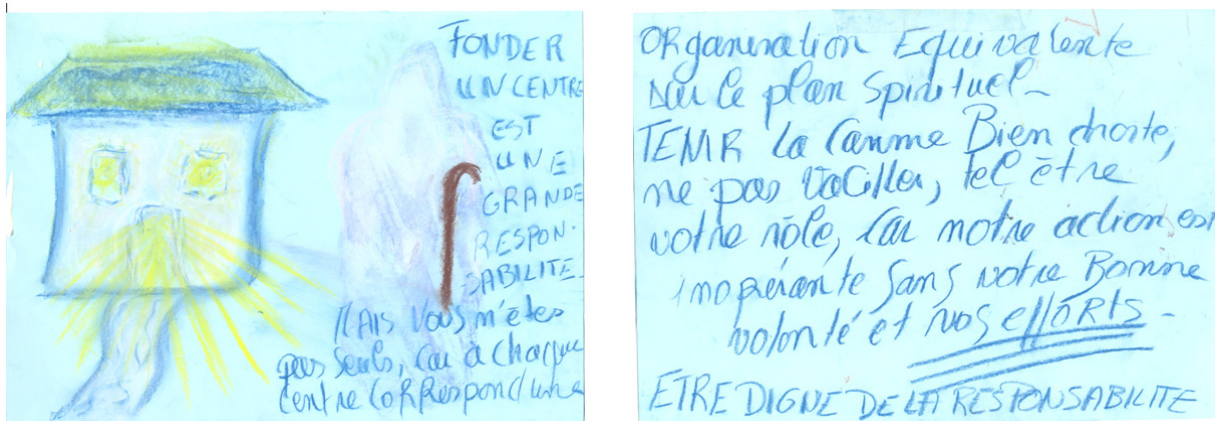 FONDER
UN CENTRE
EST
UNE
GRANDE
RESPON-
SABILITE
MAIS VOUS n'êtes
pas seuls, car à chaque
Centre CORRespond une
ORganisation Equivalente
sur le plan Spirituel-
TENIR la Canne Bien droite,
ne pas Vaciller, tel être
votre rôle, car notre action est
inopérante sans votre Bonne
volonté et vos effORTS-
ETRE DIGNE DE LA RESPONSABILITE